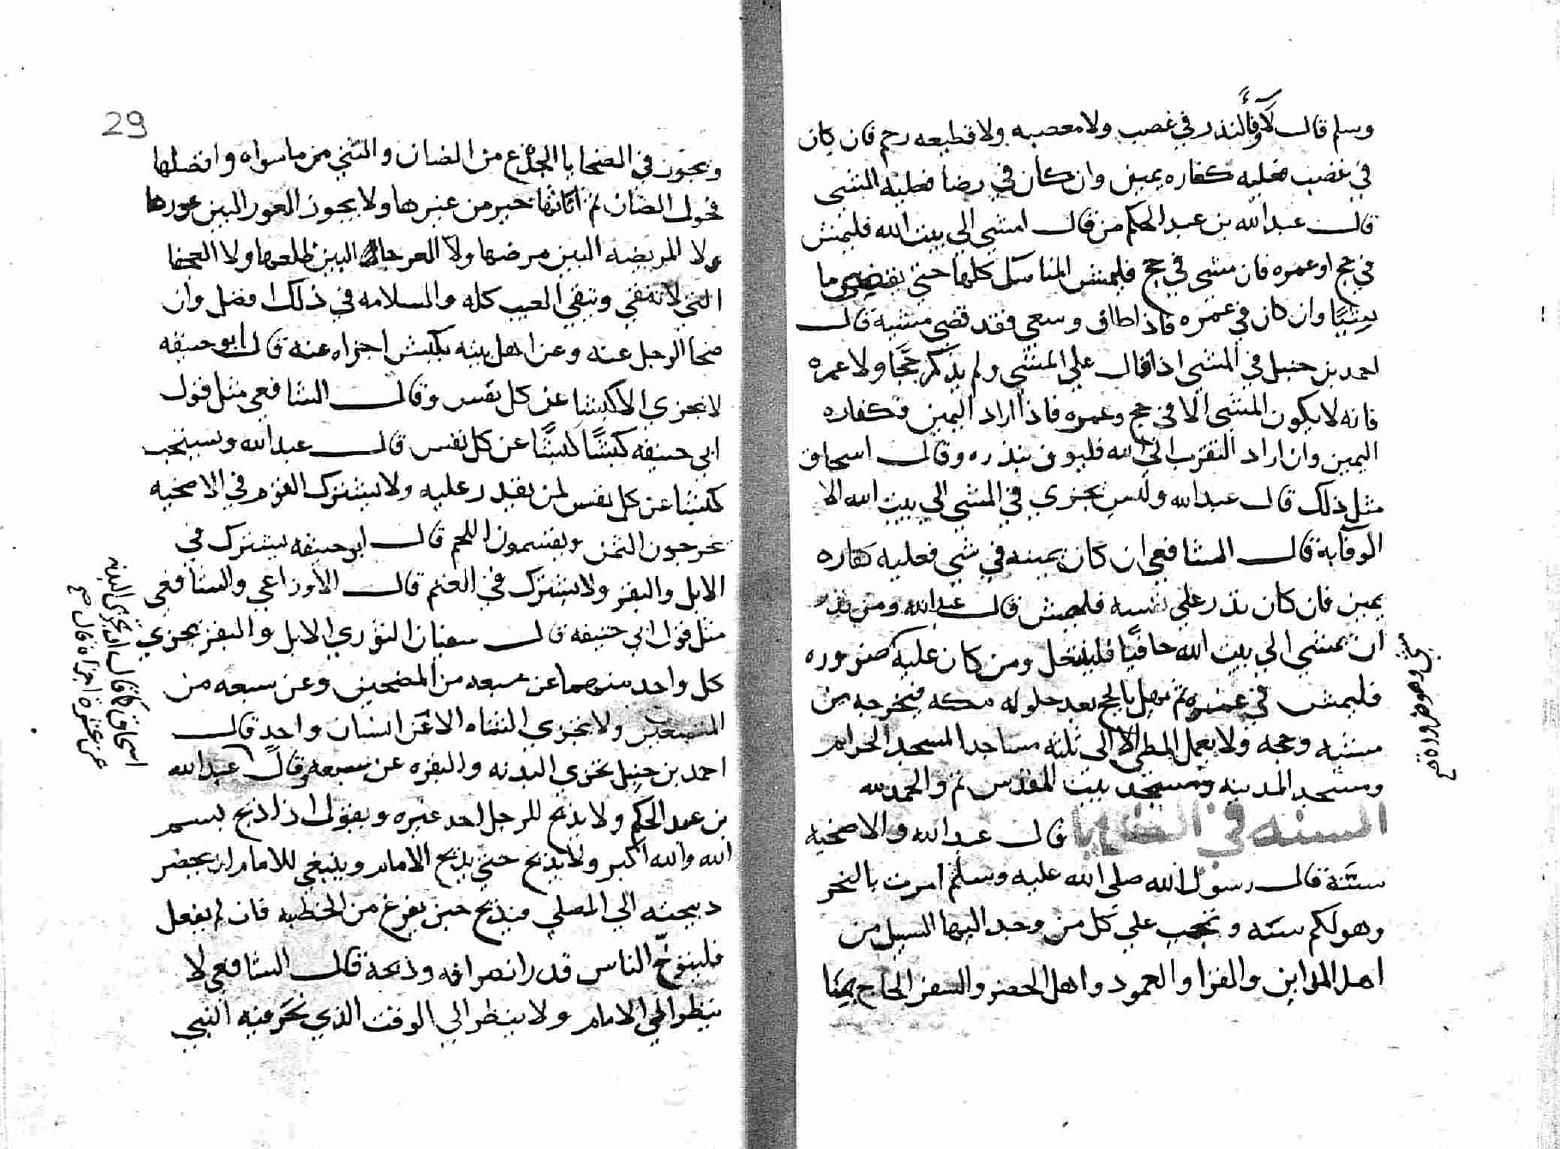 وسلم قال لا وفا لنذر في غصب ولا معصيه ولا قطيعه رحم فان كان
في غضب فعليه كفاره يمين وان كان في رضا فعليه المشى
قال عبد الله بن عبد الحكم من قال امشي الى بيت الله فليمش
في حج او عمره فان مشى في حج فليمش المناسك كلها حتى يقضي ما
وان كان في عمره فاذا طاف وسعي فقد قضى مشيه قال
احمد بن حنبل في المشي اذا قال علي المشي ولم يذكر حجا ولا عمره
فانه لا يكون المشي الا في حج وعمره فاذا اراد اليمين فكفاره
اليمين وان اراد التقرب الى الله فليوف بنذره وقال اسحاق
مثل ذلك قال عبد الله وليس يجزي في المشي الى بيت الله الا
الوفا به قال الشافعي ان كان يمينه في شي فعليه كفاره
يمين فان كان نذر على نفسه فليمش قال عبد الله ومن نذر
ان يمشي الي بيت الله حافيا فلينتعل ومن كان عليه صروره
فليمش في عمره ثم يهل بالحج بعد حلوله مكه فيخرج من
مشيه وحجه ولا يعمل المطى الا الى ثلثه مساجد المسجد الحرام
ومسجد المدينه ومسجد بيت المقدس تم والحمد لله
السنه في الضحايا قال عبد الله والاضحيه
سنة قال رسول الله صلى الله عليه وسلم امرت بالنحر
وهو لكم سنه وتجب على كل من وجد اليها السبيل من
اهل المداين والقرا والعمود واهل الحضر والسفر الا الحاج بمنا
29
ويجوز في الضحايا الجذع من الضان والثني من ما سواه وافضلها
فحول الضان ثم اناثها خير من غيرها ولا يجوز العور البين عورها
ولا المريضه البين مرضها ولا العرجا البين ظلعها ولا العجفا
التي لا تنقي وتتقي العيب كله والسلامه في ذلك افضل وان
ضحا الرجل عنه وعن اهل بيته بكبش اجزاه عنه قال ابو حنيفه
لا يجزي الا كبشا عن كل نفس وقال الشافعي مثل قول
ابي حنيفه كبشا كبشا عن كل نفس قال عبد الله ويستحب
كبشا عن كل نفس لمن يقدر عليه ولا يشترك القوم في الاضحيه
يخرجون الثمن ويقتسمون اللحم قال ابو حنيفه يشترك في
الابل والبقر ولا يشترك في الغنم قال الاوزاعي والشافعي
مثل قول ابي حنيفه قال سفيان الثوري الابل والبقر يجزي
كل واحد منهما عن سبعه من المضحين وعن سبعه من
المتمتعين ولا يجزي الشاه الا عن انسان واحد قال
احمد بن حنبل تجزي البدنه والبقره عن سبعه وقال عبد الله
بن عبد الحكم ولا يذبح للرجل احد غيره ويقول اذا ذبح بسم
الله والله اكبر ولا يذبح حتى يذبح الامام وينبغي للامام ان يحضر
ذبيحته الي المصلي فيذبح حين يفرغ من الخطبه فان لم يفعل
فليتوخ الناس قدر انصرافه وذبحه قال الشافعي لا
ينظر الى الامام ولا ينظر الي الوقت الذي نحر فيه النبي
اسحاق كما قال ان تجزي البدنه
عن عشره اجزاه قال صح